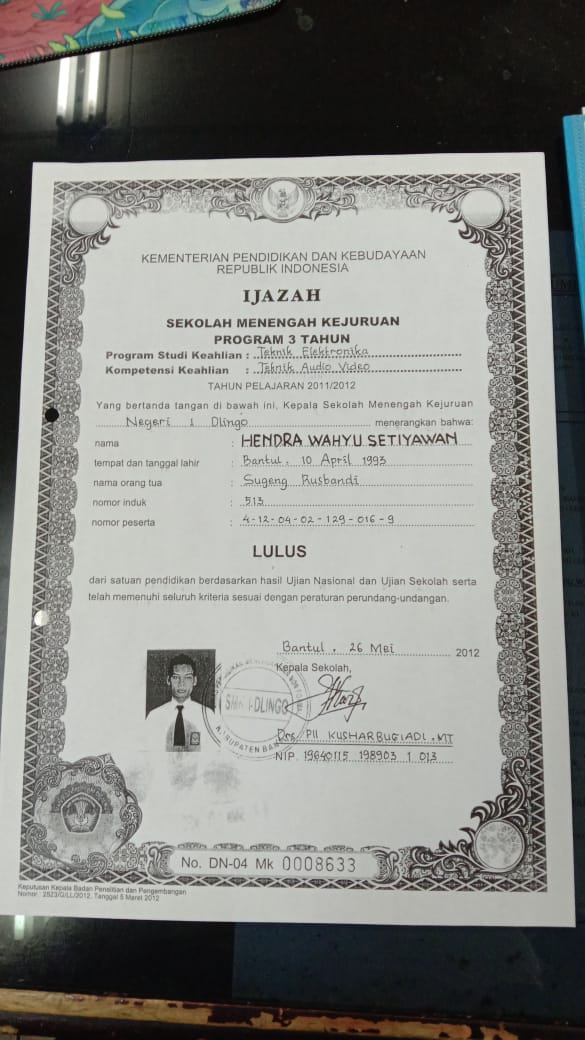 KEMENTERIAN PENDIDIKAN DAN KEBUDAYAAN
REPUBLIK INDONESIA
IJAZAH
SEKOLAH MENENGAH KEJURUAN
PROGRAM 3 TAHUN
Program Studi Keahlian : Teknik Elektronika
Kompetensi Keahlian : Teknik Audio Video
TAHUN PELAJARAN 2011/2012
Yang bertanda tangan di bawah ini, Kepala Sekolah Menengah Kejuruan
Negeri 1 Dlingo menerangkan bahwa:
nama : HENDRA WAHYU SETIYAWAN
tempat dan tanggal lahir : Bantul, 10 April 1993
nama orang tua : Sugeng Rusbandi
nomor induk : 513
nomor peserta : 4-12-04-02-129-016-9
LULUS
dari satuan pendidikan berdasarkan hasil Ujian Nasional dan Ujian Sekolah serta
telah memenuhi seluruh kriteria sesuai dengan peraturan perundang-undangan.
Bantul, 26 Mei 2012
Kepala Sekolah,
SMK 1 DLINGO
KABUPATEN BAN
Drs. PII KUSHARBUGIADI, MT
NIP. 19640115 198903 1 013
No. DN-04 Mk 0008633
Keputusan Kepala Badan Penelitian dan Pengembangan
Nomor : 2523/G/LL/2012, Tanggal 5 Maret 2012